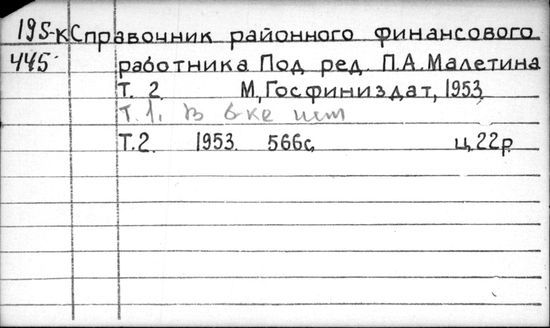 195-к Справочник районного финансового
445 работника Под ред. П.А.Малетина
Т. 2. М, Госфиниздат, 1953
Т.1. в б-ке нет
Т.2. 1953. 566с, ц.22р.